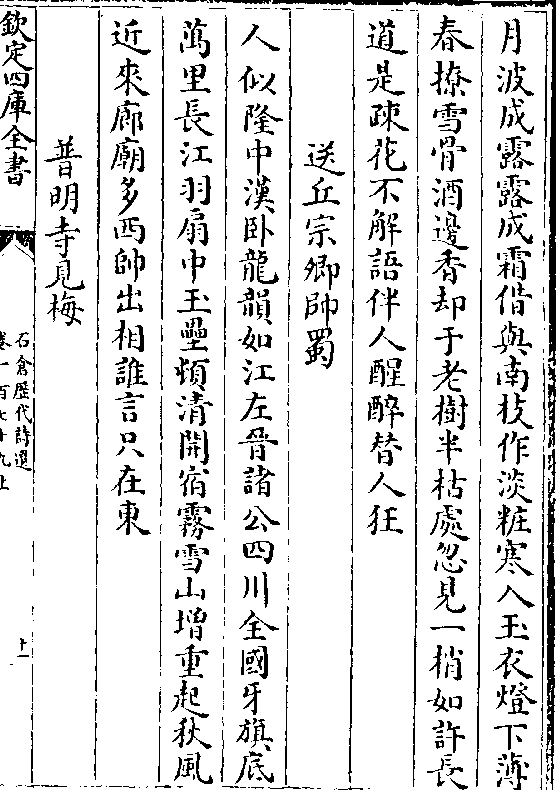 月波成露露成霜借與南枝作淡粧寒入玉衣燈下薄
春撩雪骨酒邊香却于老樹半枯處忽見一梢如許長
道是疎花不解語伴人醒醉替人狂
送丘宗卿帥蜀
人似隆中漢卧龍韻如江左晉諸公四川全國牙旗底
萬里長江羽扇中玉壘頓清開宿霧雪山增重起秋風
近來廊廟多西帥出相誰言只在東
普明寺見梅
欽定四庫全書
石倉歷代詩選
卷一百七十九上
十一